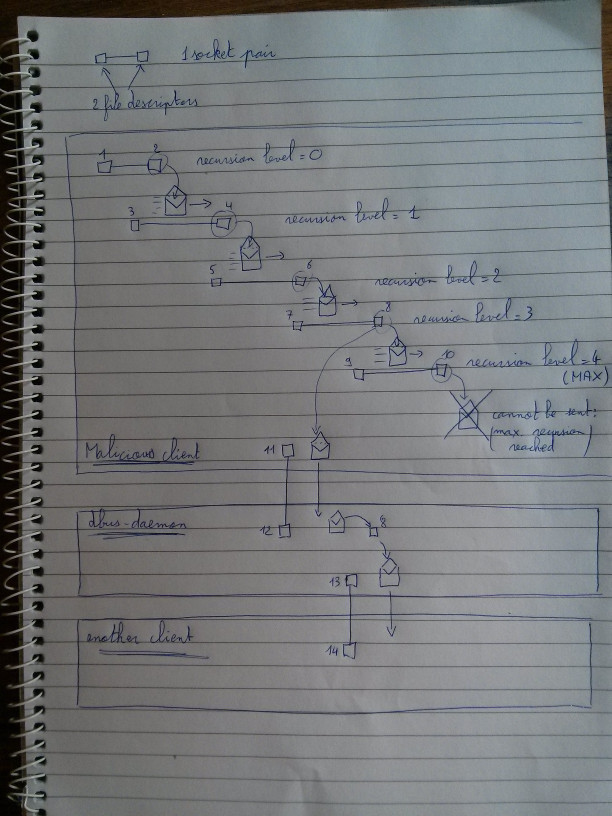 1 socket pair
2 file descriptors
1 2 recursion level = 0
3 4 recursion level = 1
5 6 recursion level = 2
7 8 recursion level = 3
9 10 recursion level = 4
(MAX)
cannot be sent:
(max recursion
reached)
Malicious client 11
dbus-daemon 12 8
13
another client 14